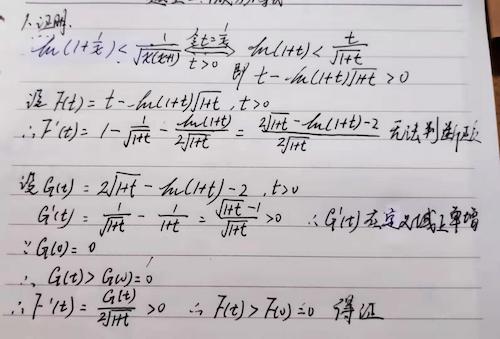 1.证明.
ln(1+1/x) < 1/√x(x+1) 令t=1/x ⟺ t>0 ln(1+t) < t/√1+t
即 t-ln(1+t)√1+t >0
设 F(t) = t-ln(1+t)√1+t, t>0
∴F'(t) = 1 - 1/√1+t - ln(1+t)/2√1+t = 2√1+t-ln(1+t)-2/2√1+t 无法判断
设G(t) = 2√1+t - ln(1+t) -2, t>0
G'(t) = 1/√1+t - 1/1+t = √1+t -1/√1+t >0 ∴G'(t)在定义域上单增
∵G(0) = 0
∴ G(t) > G(0) = 0
∴F'(t) = G(t)/2√1+t >0 ∴ F(t) > F(0) = 0 得证